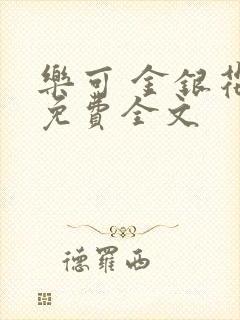 樂可 金銀花
免費全文
德羅西